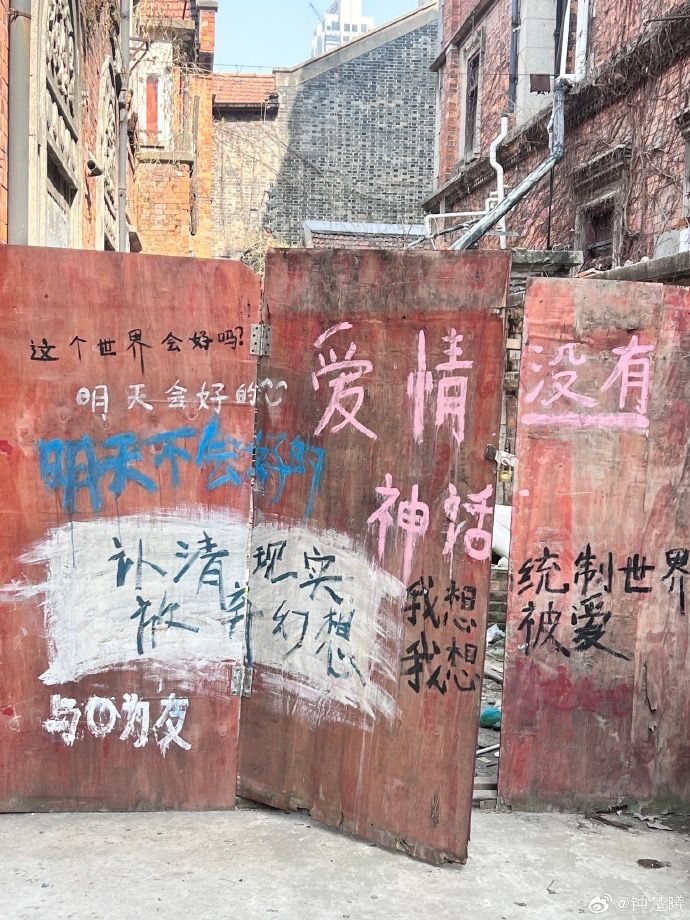 这个世界会好吗?
明天会好的
明天不会好的
认清现实
放弃幻想
与〇为友
爱情没有
神话
我想统制世界
我想被爱
@钟楚曦